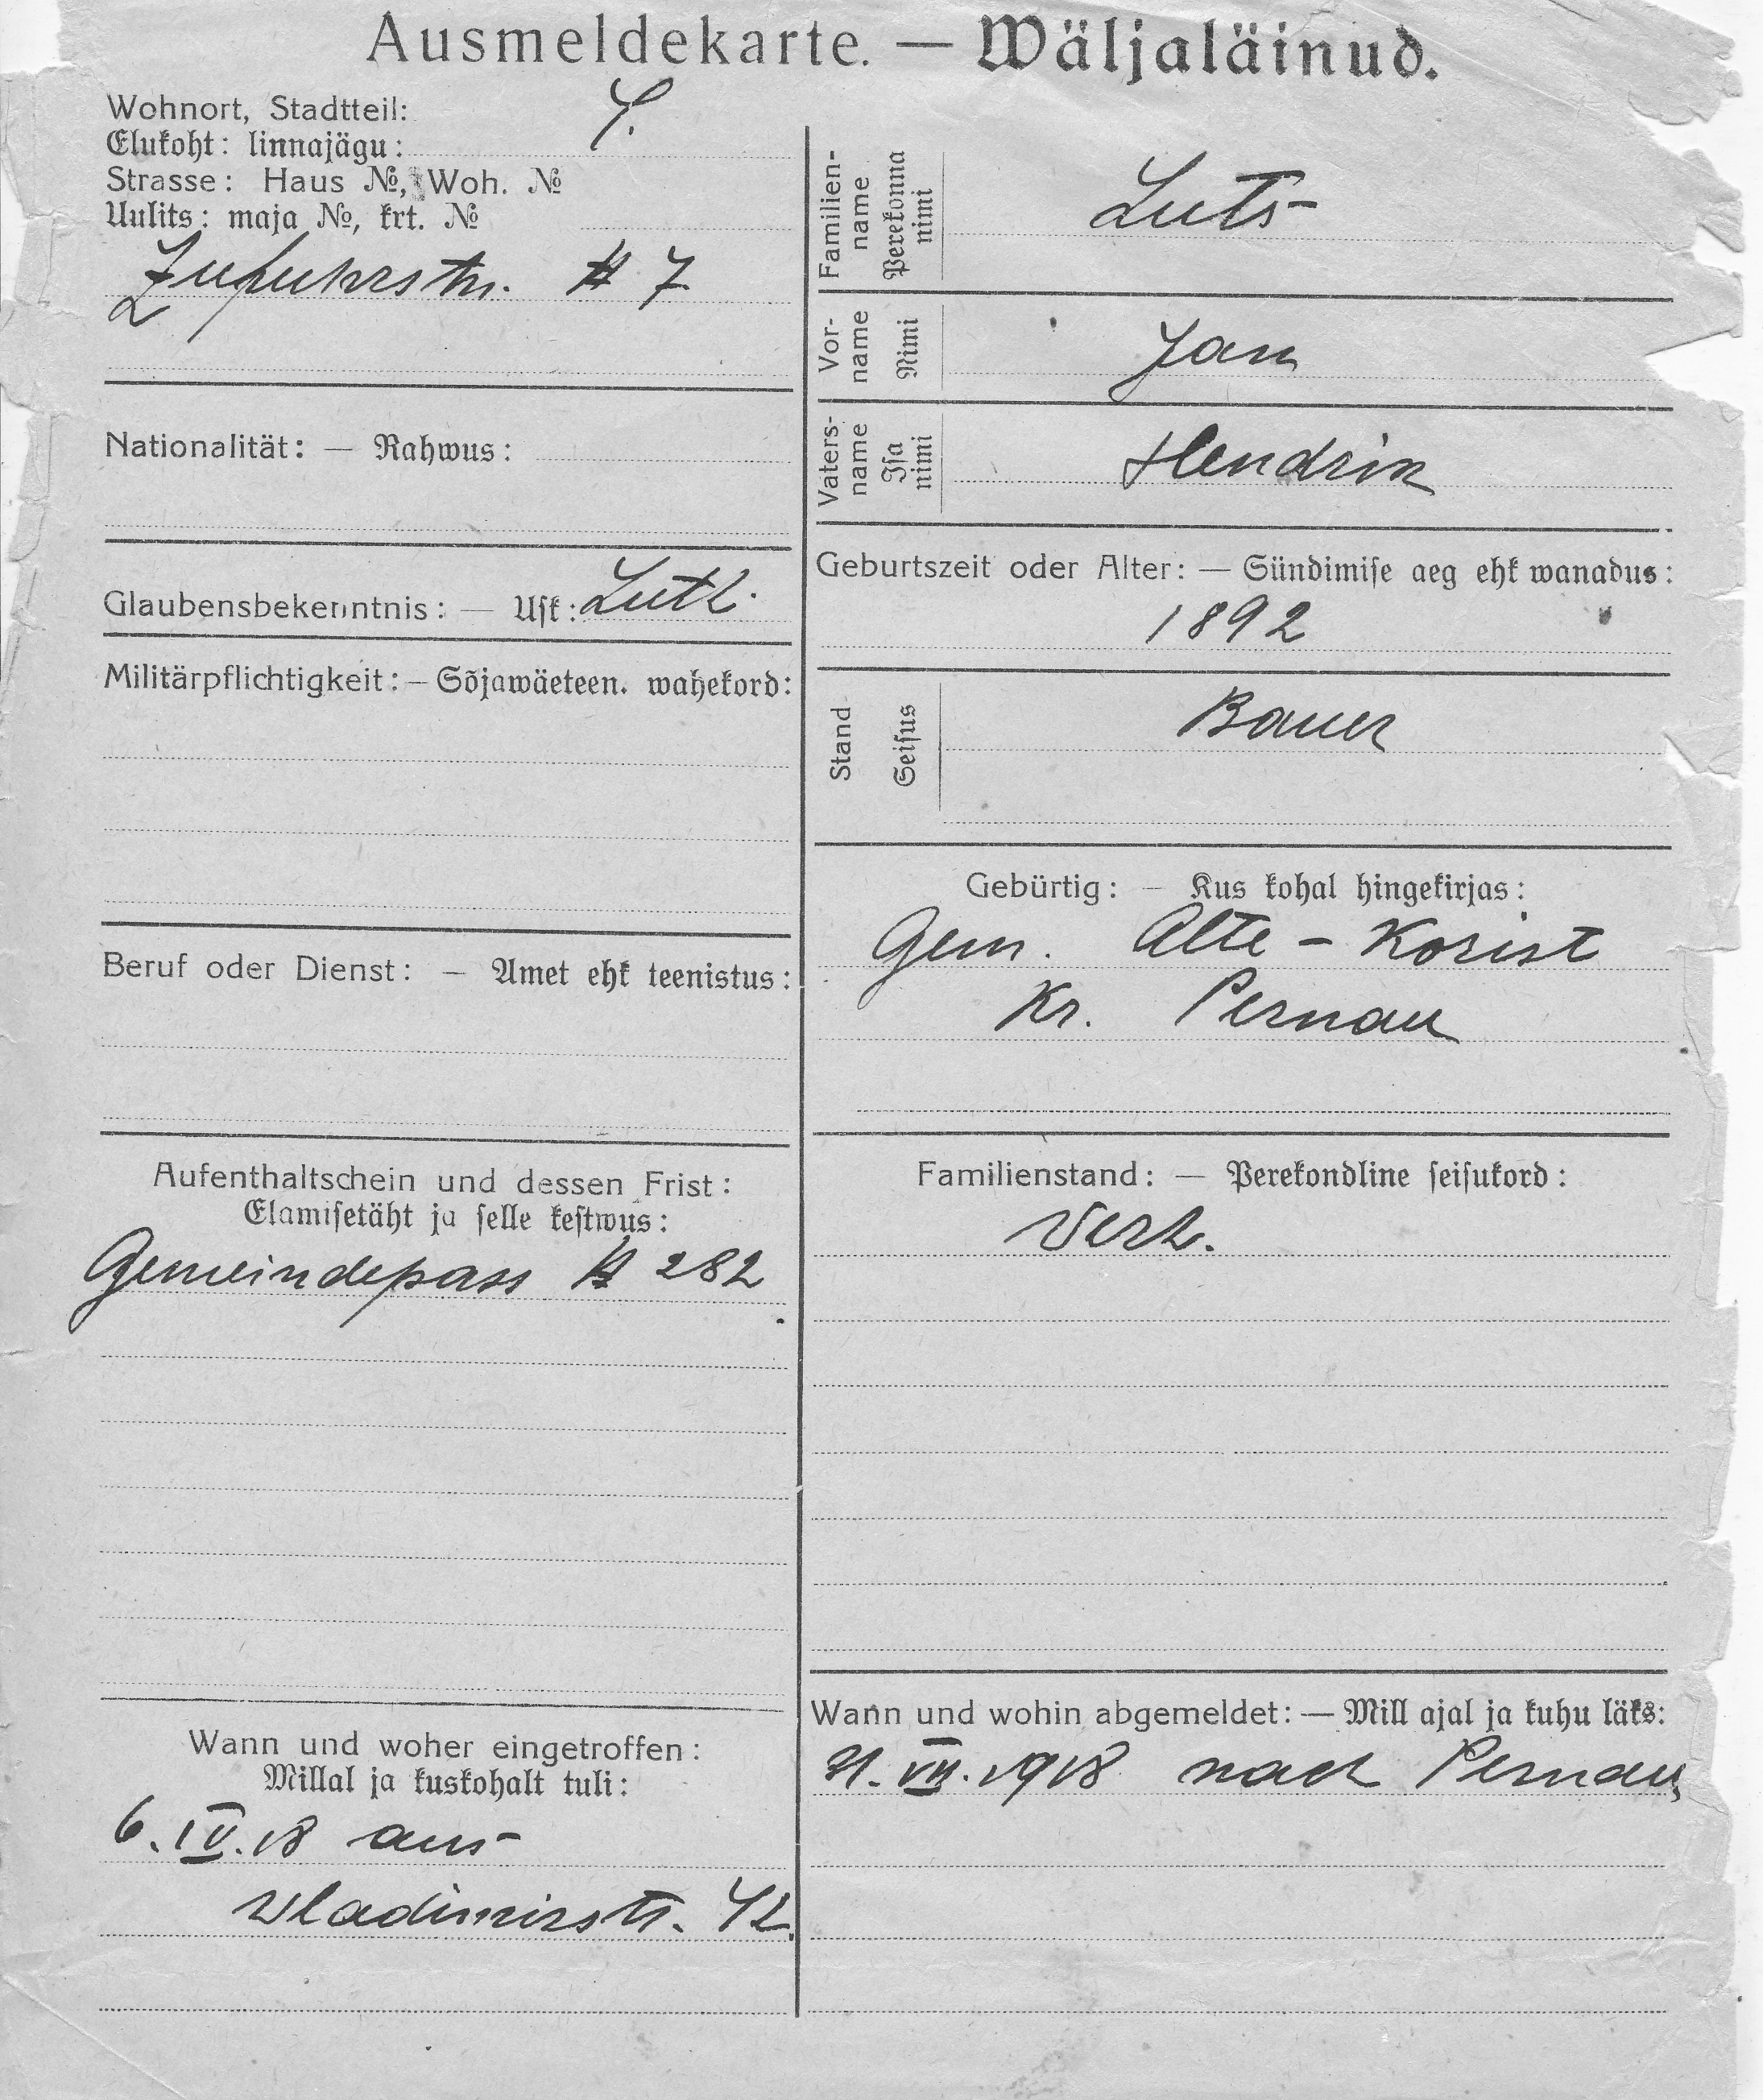 Ausmeldekarte. — Wäljaläinud.
Wohnort, Stadtteil:
Elukoht: linnajägu:
Strasse: Haus №, Woh. №
Uulits: maja №, krt. №
Zufuhrstr. № 7
Nationalität: — Rahwus:
Glaubensbekenntnis: — Usk: Luth.
Militärpflichtigkeit: — Sõjawäeteen. wahekord:
Beruf oder Dienst: — Amet ehk teenistus:
Aufenthaltschein und dessen Frist:
Elamisetäht ja selle kestwus:
Gemeindepass № 282
Wann und woher eingetroffen:
Millal ja kuskohalt tuli:
6. IV. 18 aus
Wladimirstr. 42
Familien-
name
Perekonna
nimi
Luts
Vor-
name
Nimi
Jan
Vaters-
name
Isa
nimi
Hendrik
Geburtszeit oder Alter: — Sündimise aeg ehk wanadus:
1892
Stand
Seisus
Bauer
Gebürtig: — Kus kohal hingekirjas:
Gem. Alte - Korist
Kr. Pernau
Familienstand: — Perekondline seisukord:
Verh.
Wann und wohin abgemeldet: — Mill ajal ja kuhu läks:
VII. 1918 nach Pernau